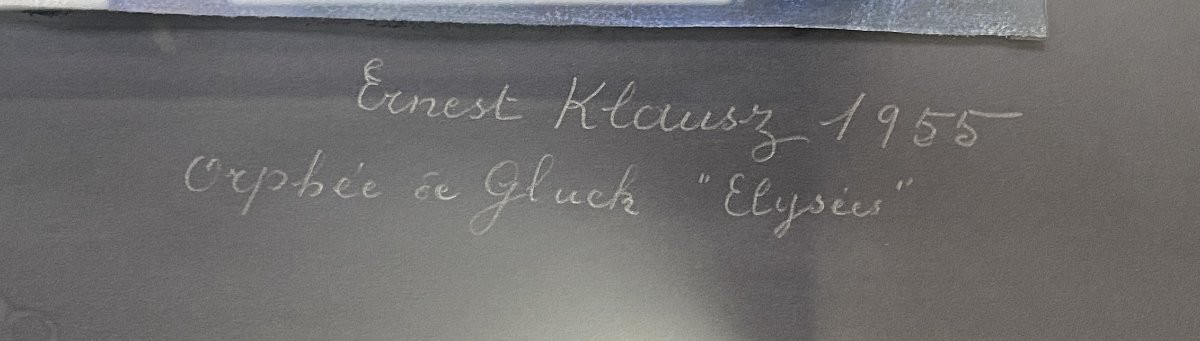 Ernest Klausz 1955
Orphée de Gluck "Elysées"